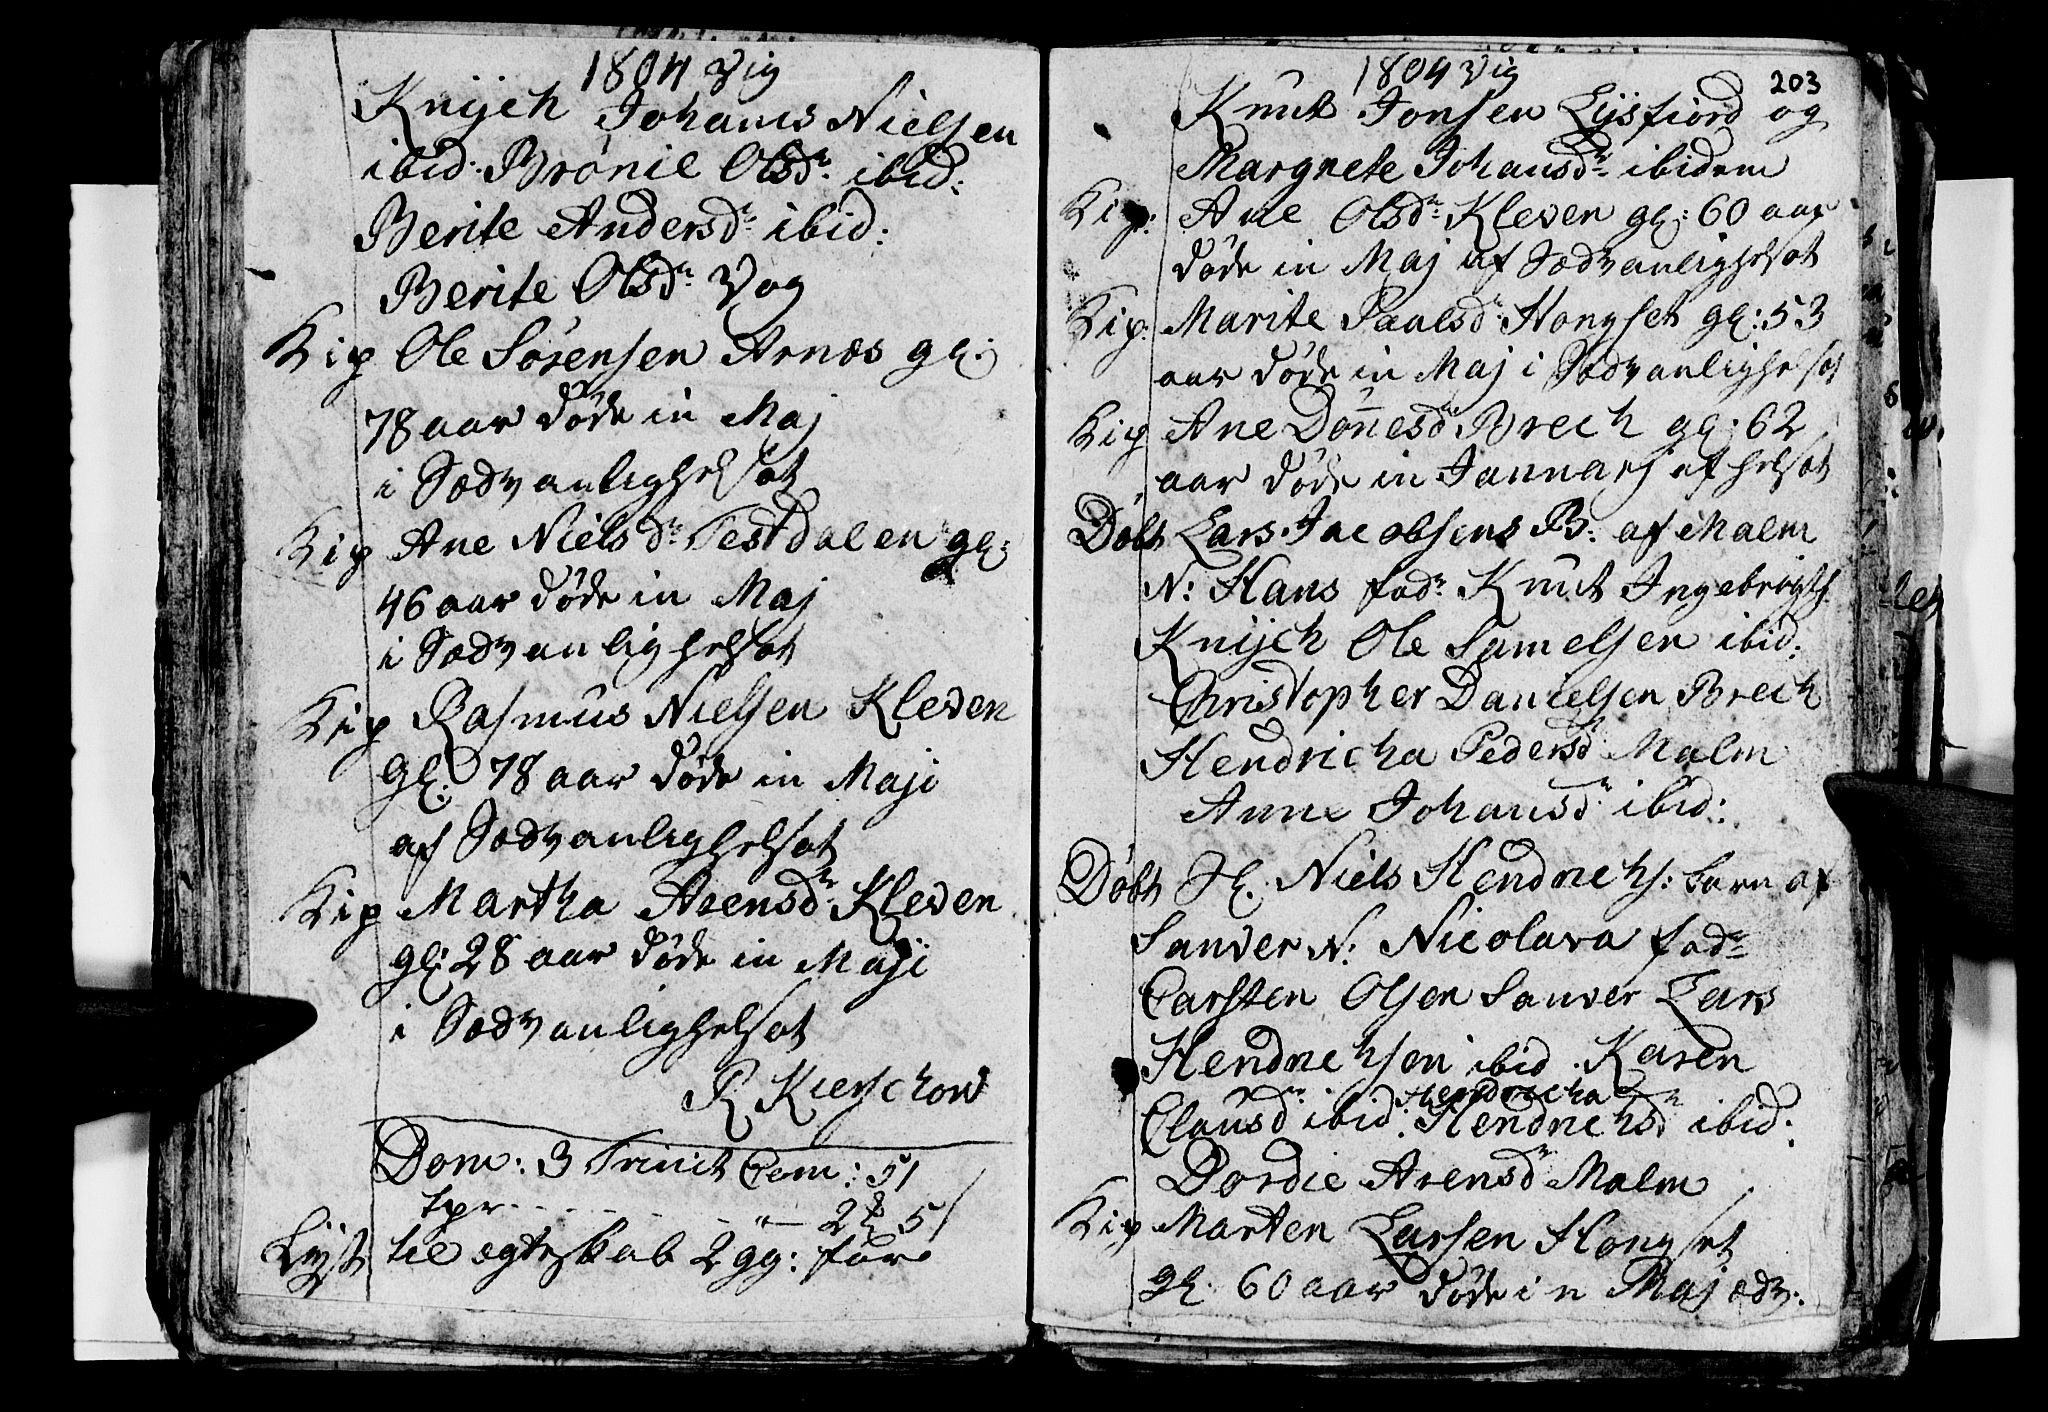 1804 Vig
Knijch Johanes Nielsen
ibid. Brønil Olsdr. ibid:
Berite Andersdr ibid:
Berite Olsdr Vog
Kip Ole Sørensen Arnæs gl:
78 aar døde in Maj
i Sædvanlighelsot
Kip Ane Nielsdr Testdalen gl:
46 aar døde in Maj
i Sædvanlighelsot
Kip Rasmus Nielsen Kleven
gl: 78 aar døde in Maji
af Sædvanlighelsot
Kip Martha Arensdr Kleven
gl: 28 aar døde in Maji
i Sædvanlighelsot
R Kierschow
Dom: 3 Trinit Com: 51
tpr. 2 51
Lyst til ægteskab 2 gg: for
1804 Vig 203
Knut Jonsen Lysfiord og
Margrete Johansdr ibidem
Kip: Ane Olsdr Kleven gl: 60 aar
døde in Maj af Sædvanlighelsot
Kip: Marite Paulsd: Hongset gl: 53
aar døde in Maj i Sædvanlighelsot
Kip Ane Dønnesd Brech gl: 62
aar døde in Januarj af helsot
Døbt Lars Jacobsens B: af Malm
N: Hans fadr Knut Ingebrigth
Knijch Ole Samelsen ibid:
Christopher Danielsen Brech
Hendricha Pedersd Malm
Anne Johansdr ibid:
Døbt H. Niels Hendrichs: barn af
Sanver N: Nicolava fadr
Carsten Olsen Sanver Lars
Hendrichsen ibid. Karen
Clausdr ibid: Hendricha Hendrichsdr ibid:
Dordie Arensdr Malm
Kip Marten Larsen Hongset
gl. 60 aar døde in Maj ædv: